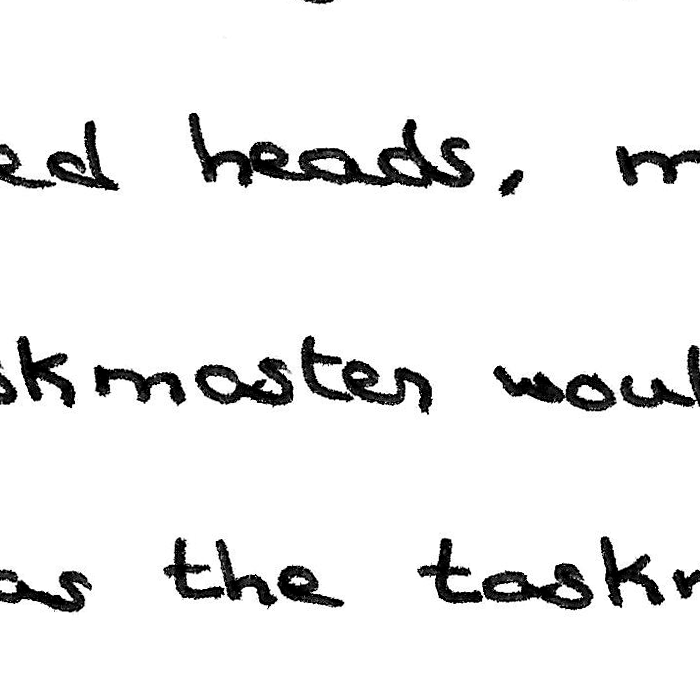 ed heads, m
skmaster woul
as the taskm